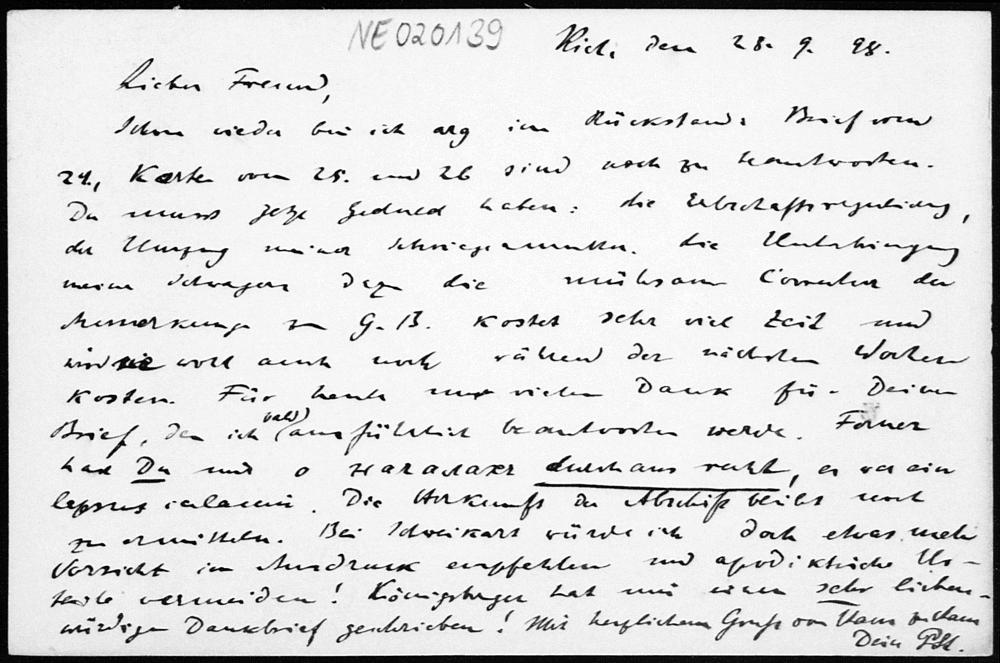 NE020139
Kiel, den 28. 9. 98.
Lieber Freund,
Schon wieder bin ich arg im Rückstand: Brief vom
24., Karten vom 25. und 26 sind noch zu beantworten.
Du musst jetzt Geduld haben: die Erbschaftsregulierung,
der Umzug meiner Schwiegermutter, die Unterbringung
meines Schwagers dazu die mühsame Correctur der
Anmerkungen zu G.B. kostet sehr viel Zeit und
wird wohl auch noch während der nächsten Wochen
kosten. Für heute nur vielen Dank für Deinen
Brief, den ich bald ausführlich beantworten werde. Ferner
hast Du mit durchaus recht, es war ein
lapsus calami. Die Herkunft der Abschift bleibt noch
zu ermitteln. Bei Schweikart würde ich doch etwas mehr
Vorsicht im Ausdruck empfehlen und apodiktische Ur-
teile vermeiden! Königsberger hat mir einen sehr liebens-
würdigen Dankbrief geschrieben! Mit herzlichem Gruss von Haus zu Haus
Dein PSt.